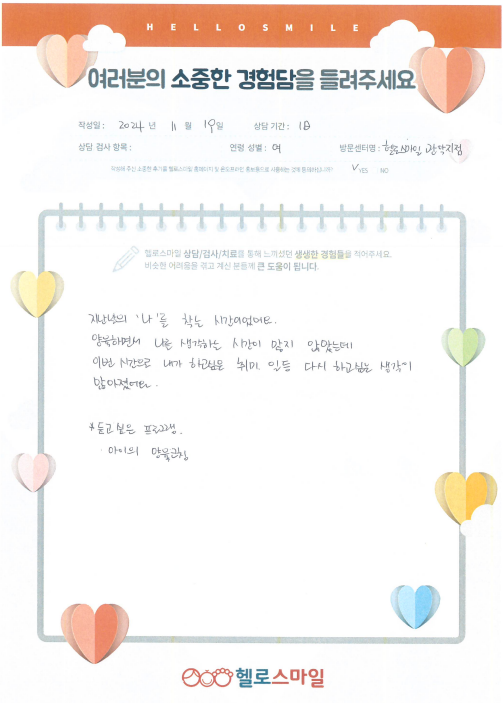 HELLOSMILE
여러분의 소중한 경험담을 들려주세요
작성일 : 2024 년 11 월 19일 상담 기간 : 1日
상담 검사 항목 : 연령 성별 : 여 방문센터명 : 헬로스마일 관악지점
작성해 주신 소중한 후기를 헬로스마일 홈페이지 및 온오프라인 홍보용으로 사용하는 것에 동의하십니까? ✓YES NO
헬로스마일 상담/검사/치료를 통해 느끼셨던 생생한 경험들을 적어주세요.
비슷한 어려움을 겪고 계신 분들께 큰 도움이 됩니다.
지난날의 '나'를 찾는 시간이었어요.
양육하면서 나를 생각하는 시간이 많지 않았는데
이번 시간으로 내가 하고싶은 취미, 일등 다시 하고싶은 생각이
많아졌어요.
*듣고 싶은 프로그램.
· 아이의 양육코칭
헬로스마일